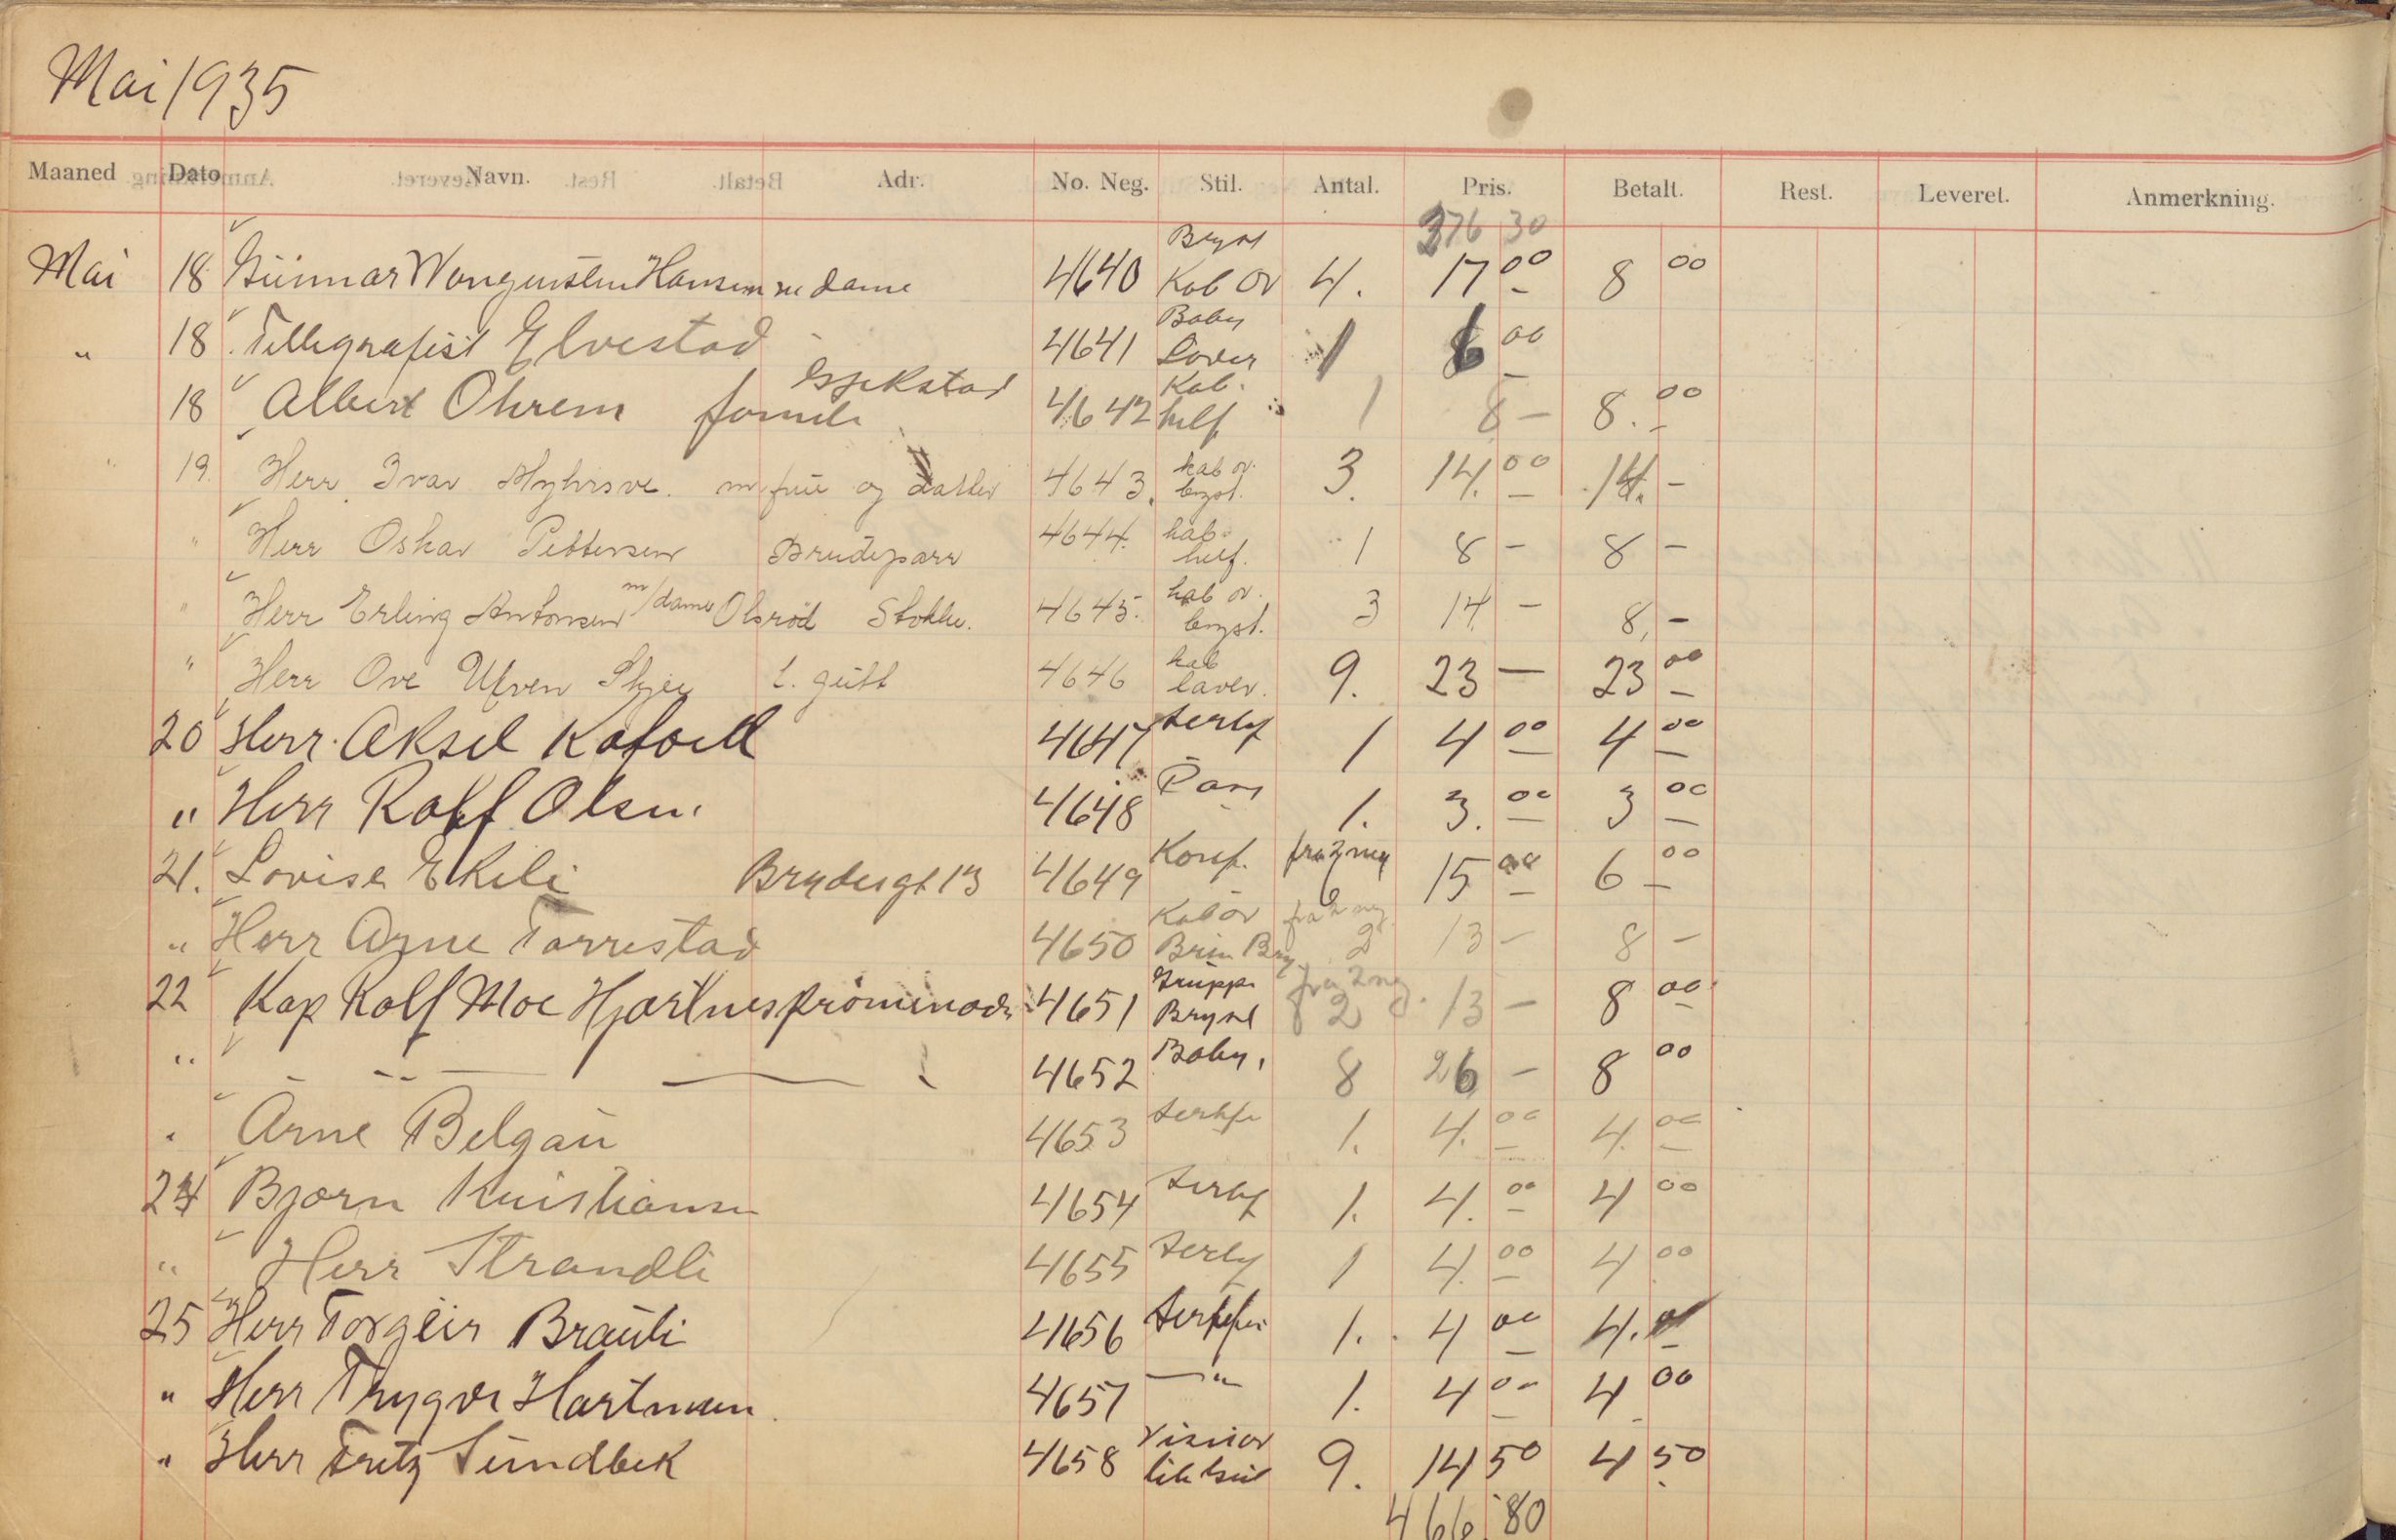 Mai 1935
Maaned Dato Navn. Adr. No. Neg. Stil. Antal. Pris. Betalt. Rest. Leveret. Anmerkning.
376 30
Mai 18 Gunnar Wangensten Hansen m dame 4640 Bryst Kab ov 4. 17 00 8 00
" 18. Tellegrafist Elvestad 4641 Baby Laver 1 6 00
18 Albert Ohrem famili 4642 Kab. helf 1 8 - 8. 00
" 19. Herr Ivar Myhrsve. m/ frue og datter 4643. kab ov. bryst. 3. 14. 00 14. -
" Herr Oskar Pettersen Brudeparr 4644. kab. helf. 1 8 - 8 -
" Herr Erling Antonsen m/dame Olsröd Stokke. 4645. kab ov. bryst. 3 14 - 8, -
" Herr Ove Ufven Skjee l. gutt 4646 kab laver. 9. 23 - 23 00
20 Herr. Aksel 4647 1 4 00 4 00
" Herr Rolf Olsen. 4648 Pas 1. 3. 00 3 00
21. Lovise Ekeli Brydesgt 13 4649 Konf. fra 3 neg 6 15 00 6 00
" Herr Arne Torrestad 4650 Kab ov Bry fra 2 neg 2 13 - 8 -
22 Kap Rolf Moe Hjertnespromenade 4651 Gruppe Bryst fra 2 neg. 2 13 - 8 00
" - " - 4652 Baby. 8 26 - 8 00
" Arne Belgau 4653 1. 4. 00 4. 00
24 Bjørn Kristiansen 4654 1. 4. 00 4 00
" Herr Strandli 4655 1 4. 00 4 00
25 Herr Torgeir Brauti 4656 1. 4 00 4. 00
" Herr Trygve Hartman 4657 - " 1. 4 00 4 00
" Herr Fritz Sundbek 4658 9. 14 50 4 50
466.80